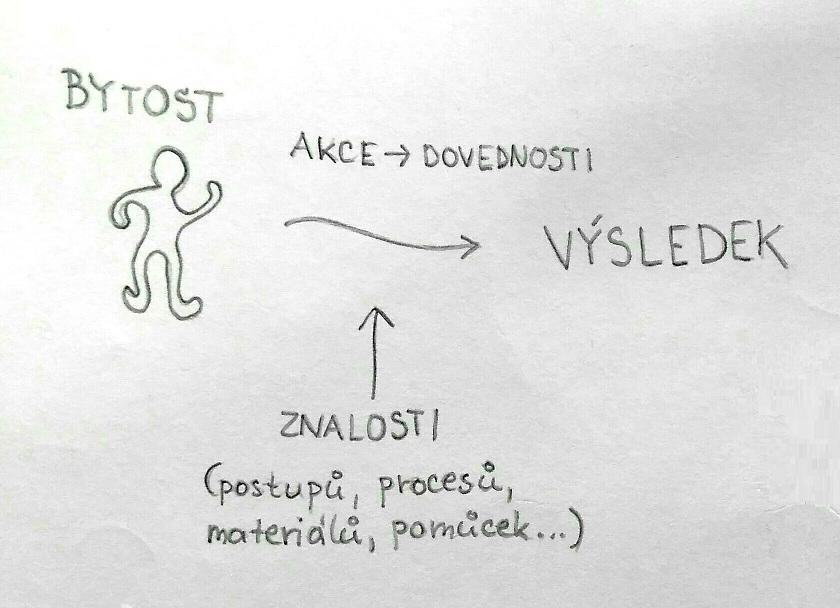 BYTOST
AKCE → DOVEDNOSTI
VÝSLEDEK
ZNALOSTI
(postupů, procesů,
materiálů, pomůcek...)